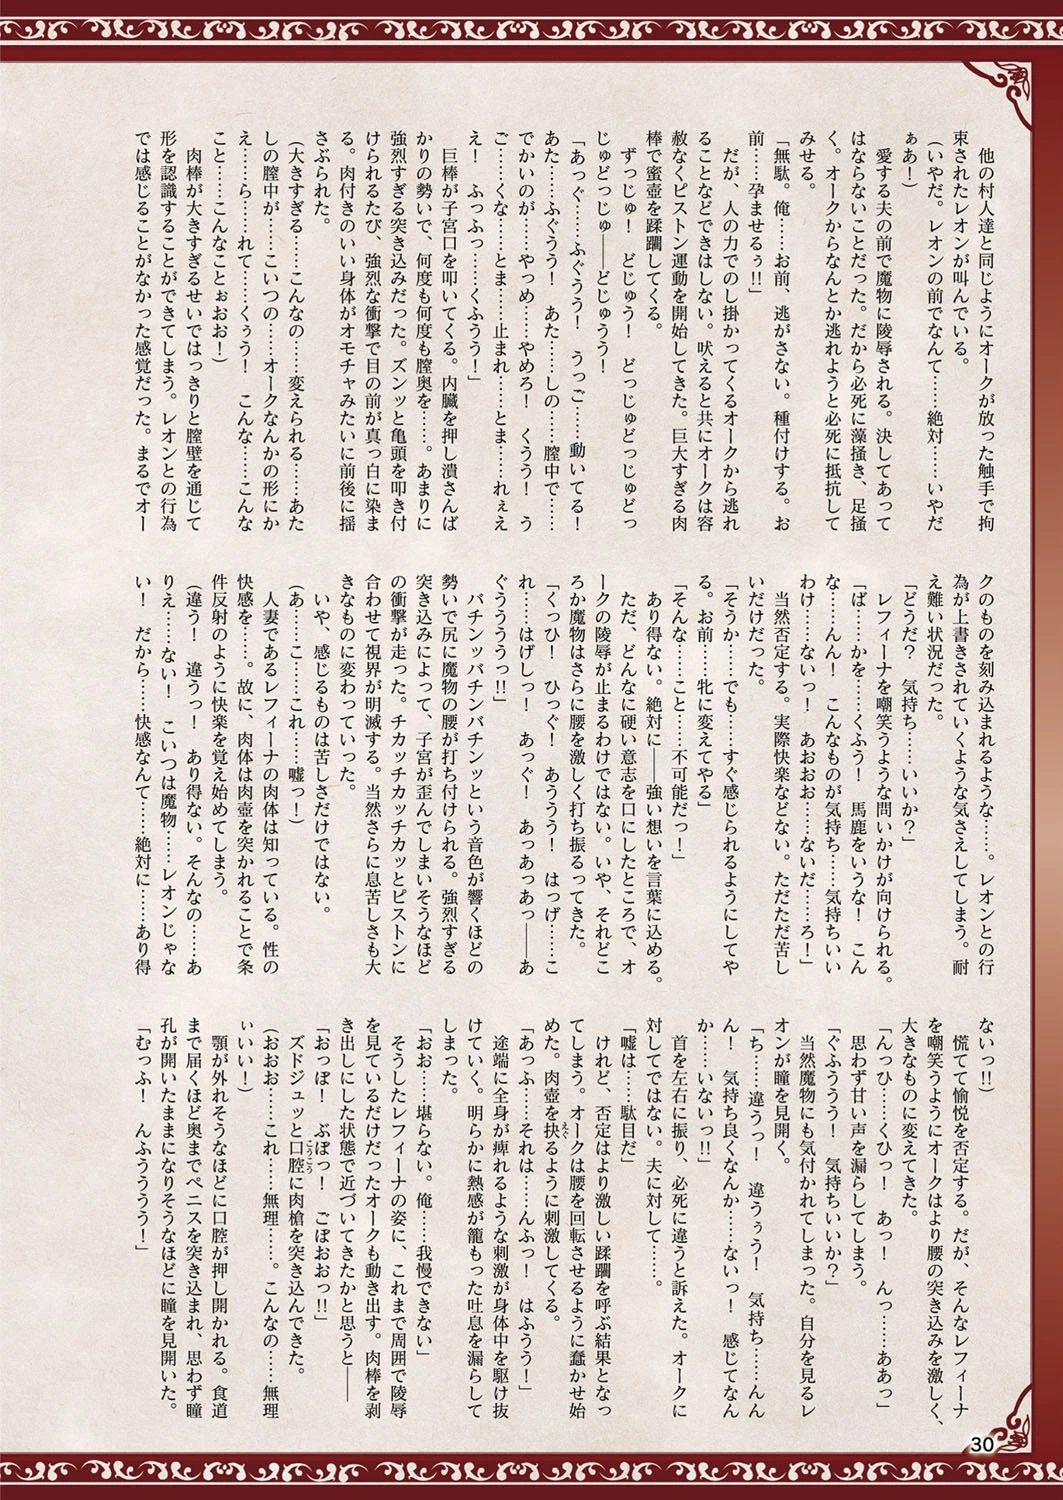 他の村人達と同じようにオークが放った触手で拘
束されたレオンが叫んでいる。
（いやだ。レオンの前でなんて……絶対……いやだ
ぁあ！）
愛する夫の前で魔物に陵辱される。決してあって
はならないことだった。だから必死に藻掻き、足掻
く。オークからなんとか逃れようと必死に抵抗して
みせる。
「無駄。俺……お前、逃がさない。種付けする。お
前……孕ませるぅ!!」
だが、人の力でのし掛かってくるオークから逃れ
ることなどできはしない。吠えると共にオークは容
赦なくピストン運動を開始してきた。巨大すぎる肉
棒で蜜壺を蹂躙してくる。
ずっじゅ！　どじゅう！　どっじゅどっじゅどっ
じゅどっじゅ――どじゅうう！
「あっぐ……ふぐうう！　うっご……動いてる！
あた……ふぐうう！　あた……しの……膣中で……
でかいのが……やっめ……やめろ！　くうう！　う
ご……くな……とま……止まれ……とま……れぇえ
え！　ふっふっ……くふうう！」
巨棒が子宮口を叩いてくる。内臓を押し潰さんば
かりの勢いで、何度も何度も膣奥を……。あまりに
強烈すぎる突き込みだった。ズンッと亀頭を叩き付
けられるたび、強烈な衝撃で目の前が真っ白に染ま
る。肉付きのいい身体がオモチャみたいに前後に揺
さぶられた。
（大きすぎる……こんなの……変えられる……あた
しの膣中が……こいつの……オークなんかの形にか
え……ら……れて……くぅう！　こんな……こんな
こと……こんなことぉおお！）
肉棒が大きすぎるせいではっきりと膣壁を通じて
形を認識することができてしまう。レオンとの行為
では感じることがなかった感覚だった。まるでオー
クのものを刻み込まれるような……。レオンとの行
為が上書きされていくような気さえしてしまう。耐
え難い状況だった。
「どうだ？　気持ち……いいか？」
レフィーナを嘲笑うような問いかけが向けられる。
「ば……かを……くふう！　馬鹿をいうな！　こん
な……んん！　こんなものが気持ち……気持ちいい
わけ……ないっ！　あおおお……ないだ……ろ！」
当然否定する。実際快楽などない。ただただ苦し
いだけだった。
「そうか……でも……すぐ感じられるようにしてや
る。お前……牝に変えてやる」
「そんな……こと……不可能だっ！」
あり得ない。絶対に――強い想いを言葉に込める。
ただ、どんなに硬い意志を口にしたところで、オ
ークの陵辱が止まるわけではない。いや、それどこ
ろか魔物はさらに腰を激しく打ち振るってきた。
「くっひ！　ひっぐ！　あううう！　はっげ……こ
れ……はげしっ！　あっぐ！　あっあっあっ――あ
ぐうううっ!!」
バチンッバチンバチンッという音色が響くほどの
勢いで尻に魔物の腰が打ち付けられる。強烈すぎる
突き込みによって、子宮が歪んでしまいそうなほど
の衝撃が走った。チカッチカッチカッとピストンに
合わせて視界が明滅する。当然さらに息苦しさも大
きなものに変わっていった。
いや、感じるものは苦しさだけではない。
（あ……こ……これ……嘘っ！）
人妻であるレフィーナの肉体は知っている。性の
快感を……。故に、肉体は肉壺を突かれることで条
件反射のように快楽を覚え始めてしまう。
（違う！　違うっ！　あり得ない。そんなの……あ
りえ……ない！　こいつは魔物……レオンじゃな
い！　だから……快感なんて……絶対に……あり得
ないっ!!）
慌てて愉悦を否定する。だが、そんなレフィーナ
を嘲笑うようにオークはより腰の突き込みを激しく、
大きなものに変えてきた。
「んっひ……くひっ！　あっ！　んっ……ああっ」
思わず甘い声を漏らしてしまう。
「ぐふううう！　気持ちいいか？」
当然魔物にも気付かれてしまった。自分を見るレ
オンが瞳を見開く。
「ち……違うっ！　違うぅう！　気持ち……んん
ん！　気持ち良くなんか……ないっ！　感じてなん
か……いないっ!!」
首を左右に振り、必死に違うと訴えた。オークに
対してではない。夫に対して……。
「嘘は……駄目だ」
けれど、否定はより激しい蹂躙を呼ぶ結果となっ
てしまう。オークは腰を回転させるように蠢かせ始
めた。肉壺を抉（えぐ）るように刺激してくる。
「あっふ……それは……んふっ！　はふうう！」
途端に全身が痺れるような刺激が身体中を駆け抜
けていく。明らかに熱感が籠もった吐息を漏らして
しまった。
「おお……堪らない。俺……我慢できない」
そうしたレフィーナの姿に、これまで周囲で陵辱
を見ているだけだったオークも動き出す。肉棒を剥
き出しにした状態で近づいてきたかと思うと――
「おっぽ！　ぶぽっ！　ごぽおおっ!!」
ズドジュッと口腔（こうこう）に肉槍を突き込んできた。
（おおお……これ……無理……。こんなの……無理
いいい！）
顎が外れそうなほどに口腔が押し開かれる。食道
まで届くほど奥までペニスを突き込まれ、思わず瞳
孔が開いたままになりそうなほどに瞳を見開いた。
「むっふ！　んふうううう！」
30